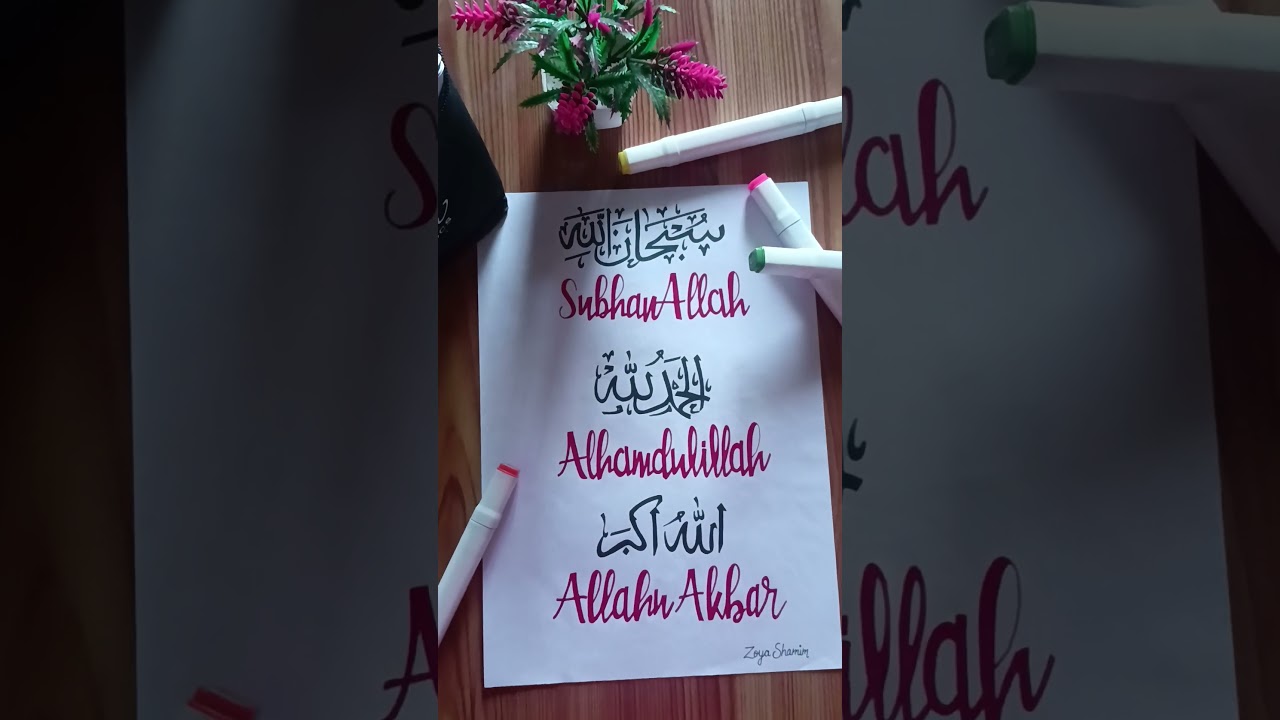 سُبْحَانَ اللَّهِ
SubhanAllah
الْحَمْدُ لِلَّهِ
Alhamdulillah
اللَّهُ أَكْبَر
Allahu Akbar
Zoya Shamim